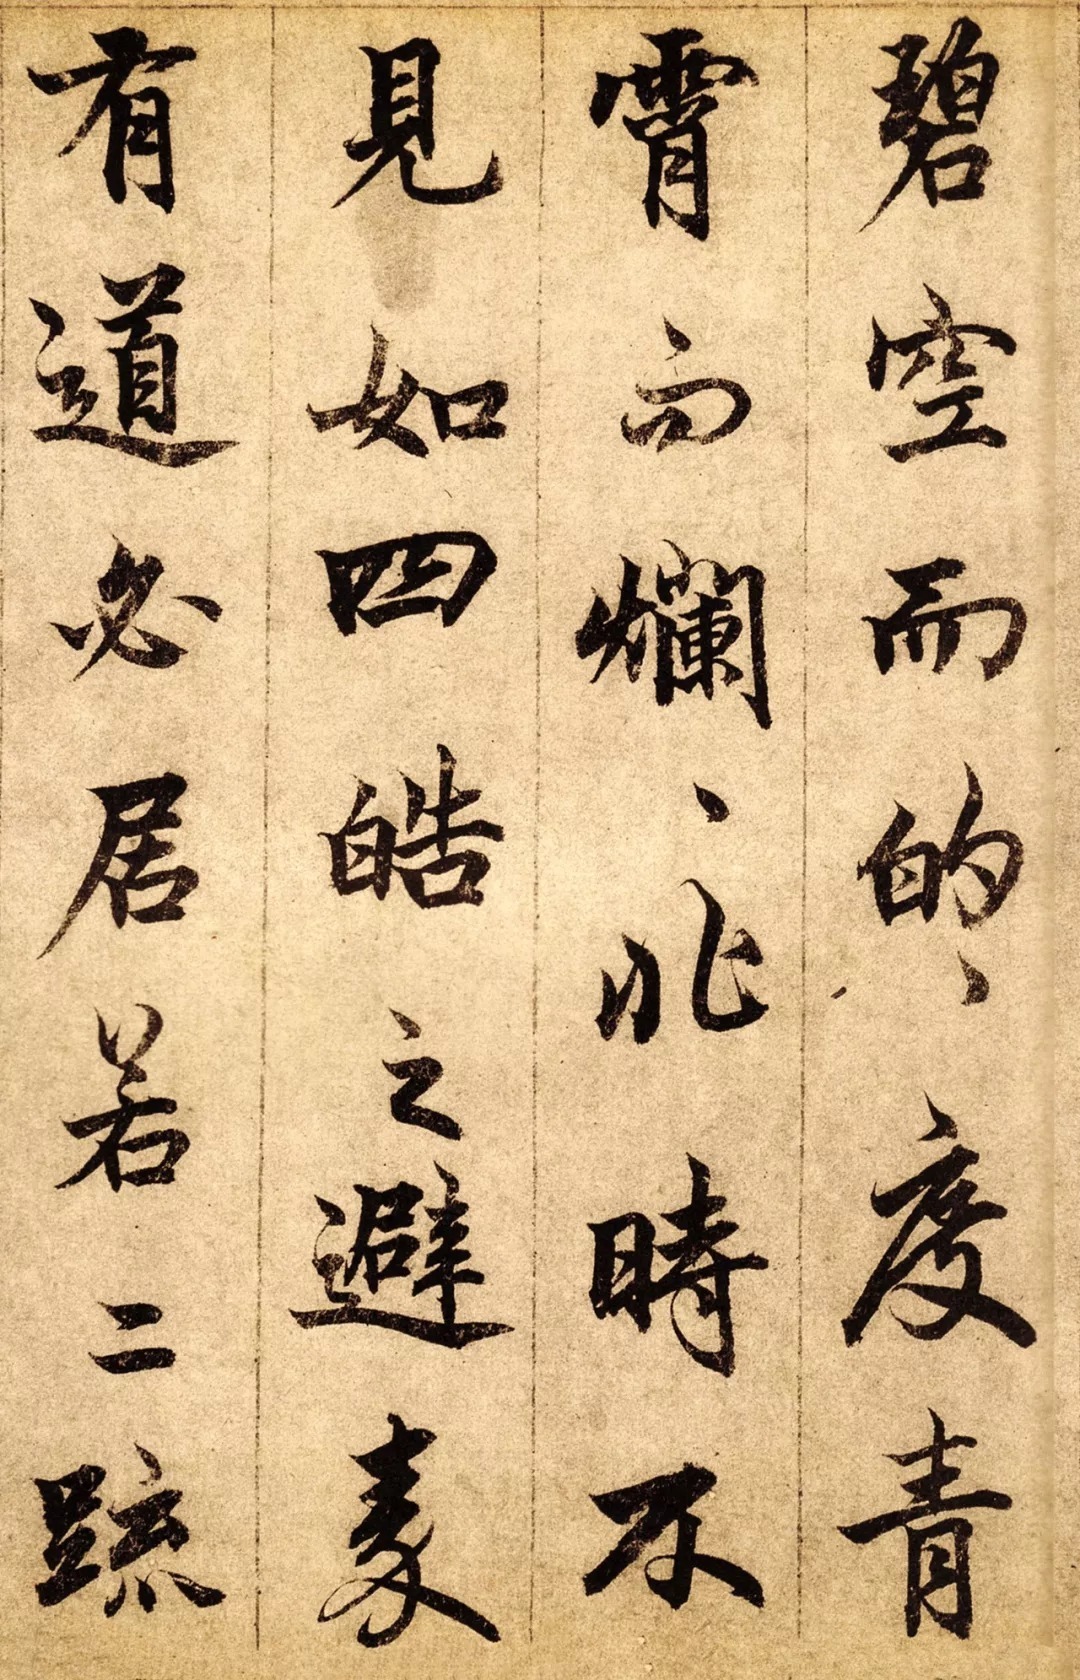 碧空而的、度青
霄而爛、此時不
見如四皓之避秦
有道必居若二疏